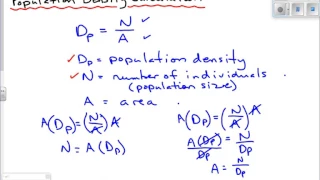 Population Density Calculation
Dp = N/A
Dp = population density
N = number of individuals
(population size)
A = area
A(Dp) = (N/A)A
N = A(Dp)
A(Dp)/Dp = N/Dp
A = N/Dp